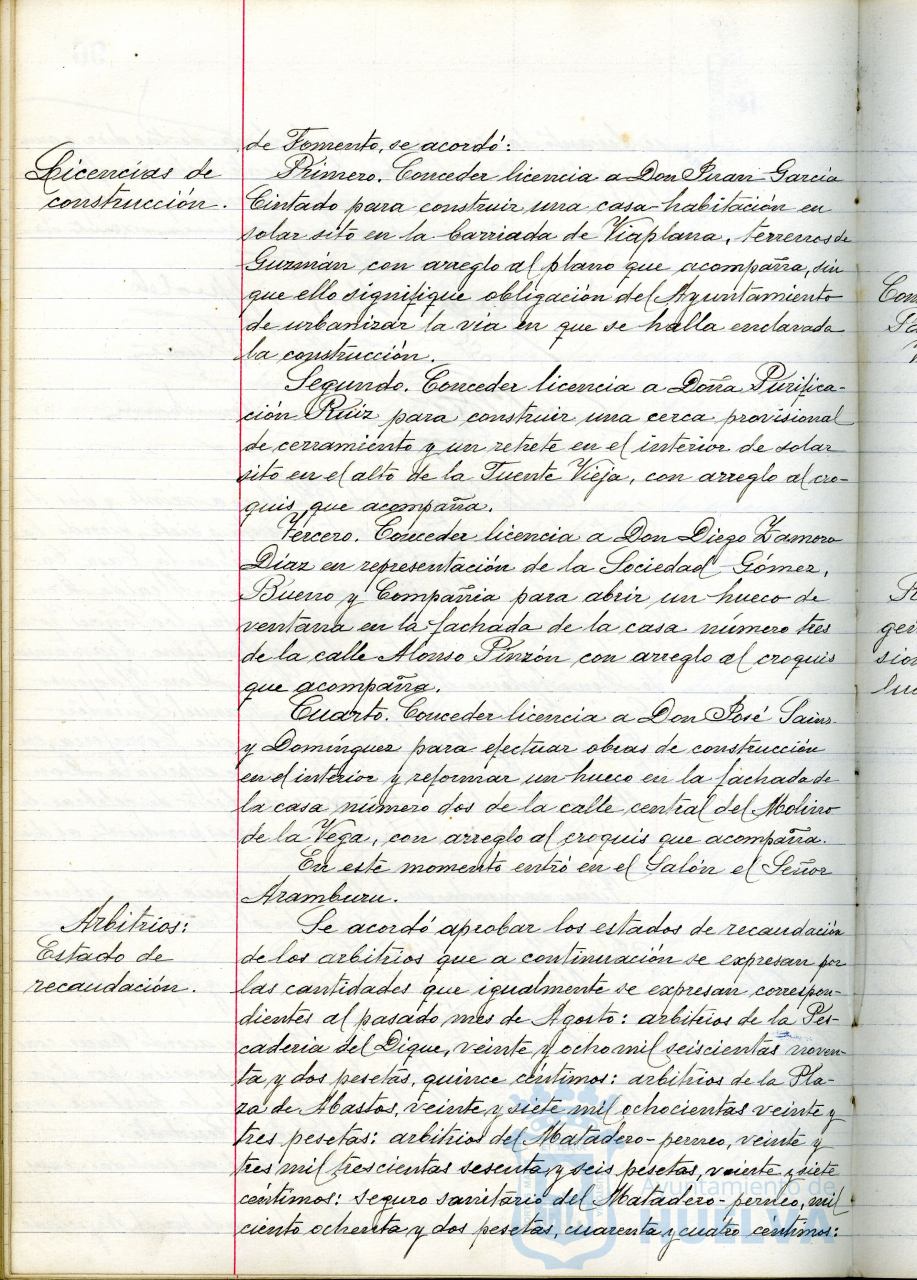 de Fomento, se acordó:
Licencias de
construcción.
Primero. Conceder licencia a Don Juan García
Cintado para construir una casa-habitación en
solar sito en la barriada de Viaplana, terrenos de
Guzmán con arreglo al plano que acompaña, sin
que ello signifique obligación del Ayuntamiento
de urbanizar la vía en que se halla enclavada
la construcción.
Segundo. Conceder licencia a Doña Purifica-
ción Ruiz para construir una cerca provisional
de cerramiento y un retrete en el interior de solar
sito en el alto de la Fuente Vieja, con arreglo al cro-
quis que acompaña.
Tercero. Conceder licencia a Don Diego Zamora
Díaz en representación de la Sociedad Gómez,
Bueno y Compañia para abrir un hueco de
ventana en la fachada de la casa número tres
de la calle Alonso Pinzón con arreglo al croquis
que acompaña.
Cuarto. Conceder licencia a Don José Sainz
y Domínguez para efectuar obras de construcción
en el interior y reformar un hueco en la fachada de
la casa número dos de la calle central del Molino
de la Vega, con arreglo al croquis que acompaña.
En este momento entró en el Salón el Señor
Aramburu.
Arbitrios:
Estado de
recaudación.
Se acordó aprobar los estados de recaudación
de los arbitrios que a continuación se expresan por
las cantidades que igualmente se expresan correspon-
dientes al pasado mes de Agosto: arbitrios de la Pes-
caderia del Dique, veinte y ocho mil seiscientas noven-
ta y dos pesetas, quince céntimos: arbitrios de la Pla-
za de Abastos, veinte y siete mil ochocientas veinte y
tres pesetas: arbitrios del Matadero-perneo, veinte y
tres mil trescientas sesenta y seis pesetas, veinte y siete
céntimos: seguro sanitario del Matadero-perneo, mil
ciento ochenta y dos pesetas, cuarenta y cuatro céntimos:
Ayuntamiento de
HUELVA